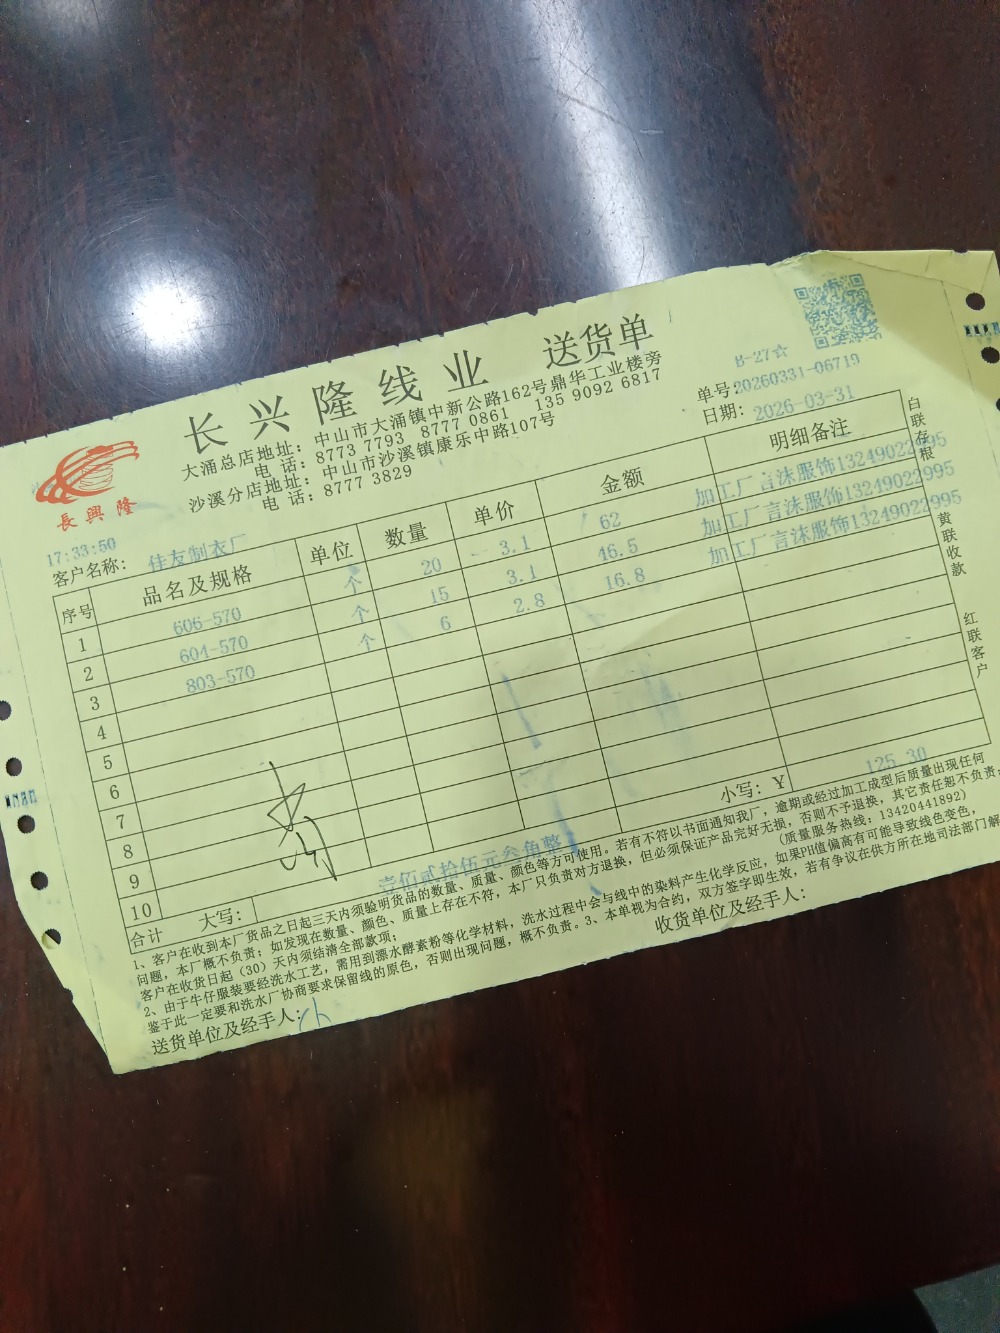 长兴隆线业 送货单
大涌总店地址：中山市大涌镇中新公路162号鼎华工业楼旁
电 话：8773 7793 8777 0861 135 9092 6817
沙溪分店地址：中山市沙溪镇康乐中路107号
电 话：8777 3829
長興隆
B-27☆
单号:20260331-06719
日期: 2026-03-31
17:33:50
客户名称: 佳友制衣厂
序号 品名及规格 单位 数量 单价 金额 明细备注
1 606-570 个 20 3.1 62 加工厂言沫服饰13249022995
2 604-570 个 15 3.1 46.5 加工厂言沫服饰13249022995
3 803-570 个 6 2.8 16.8 加工厂言沫服饰13249022995
4
5
6
7
8
9
10
合计 大写: 壹佰贰拾伍元叁角整 小写: Y 125.30
1、客户在收到本厂货品之日起三天内须验明货品的数量、质量、颜色等方可使用。若有不符以书面通知我厂，逾期或经过加工成型后质量出现任何
问题，本厂概不负责；如发现在数量、颜色、质量上存在不符，本厂只负责对方退换，但必须保证产品完好无损，否则不予退换，其它责任恕不负责；
客户在收货日起（30）天内须结清全部款项； (质量服务热线: 13420441892)
2、由于牛仔服装要经洗水工艺，需用到漂水酵素粉等化学材料，洗水过程中会与线中的染料产生化学反应，如果PH值偏高有可能导致线色变色，
鉴于此一定要和洗水厂协商要求保留线的原色，否则出现问题，概不负责。3、本单视为合约，双方签字即生效，若有争议在供方所在地司法部门解
送货单位及经手人: 收货单位及经手人:
白联存根
黄联收款
红联客户